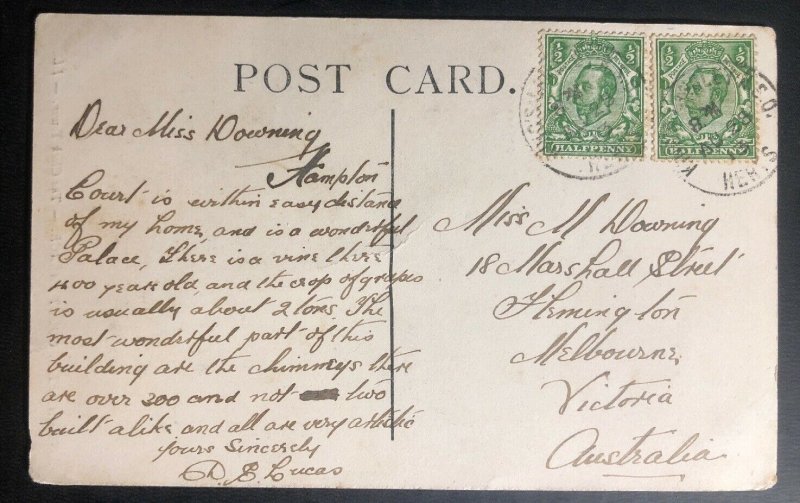 POST CARD.
1/2 1/2
HALFPENNY
1/2 1/2
HALFPENNY
Dear Miss Downing
Hampton
Court is within easy distance
of my home, and is a wonderful
Palace, There is a vine there
400 years old, and the crop of grapes
is usually about 2 tons. The
most wonderful part of this
building are the chimneys there
are over 200 and not two
built alike and all are very artistic
Yours Sincerely
D. E Lucas
Miss M Downing
18 Marshall Street
Flemington
Melbourne,
Victoria
Australia